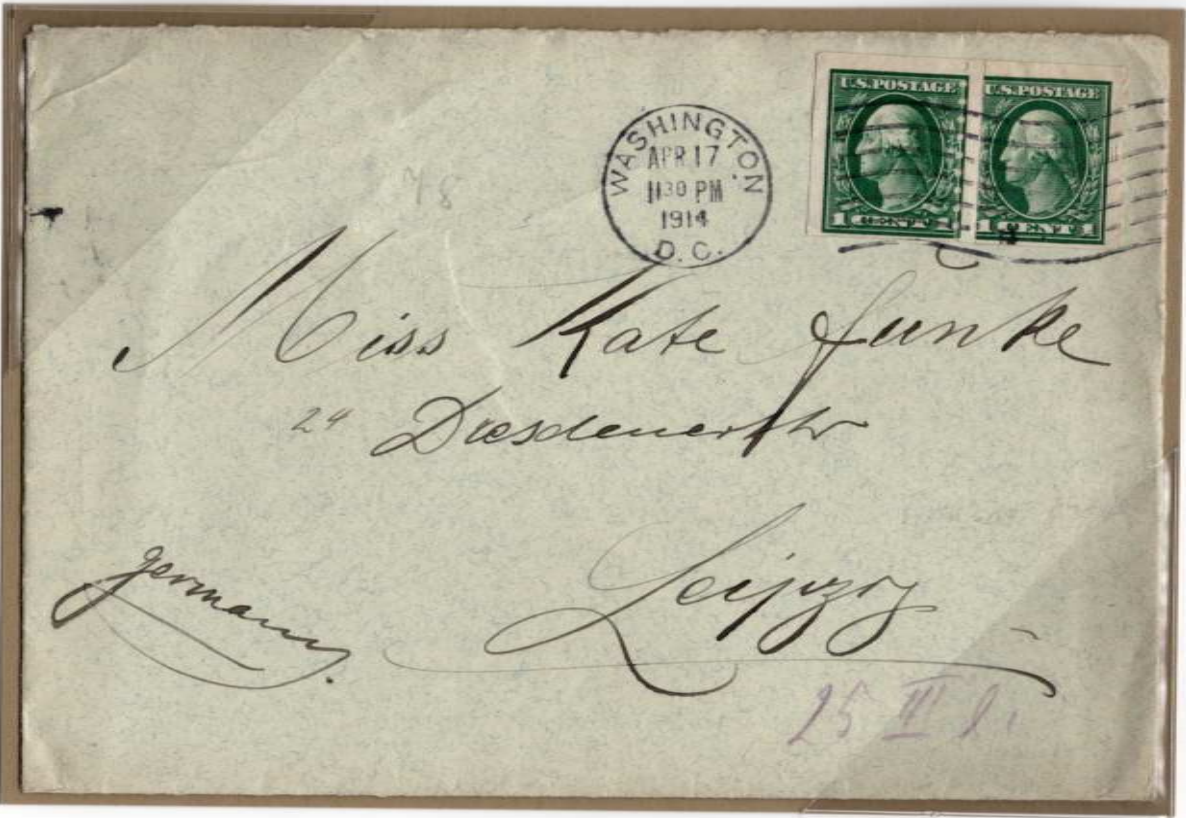 U.S.POSTAGE U.S.POSTAGE
1 CENT 1 1 CENT 1
WASHINGTON,
APR 17
1130 PM
1914
D.C.
78
Miss Kate Funke
24 Dresdenerstr
Leipzig
Germany.
25 III